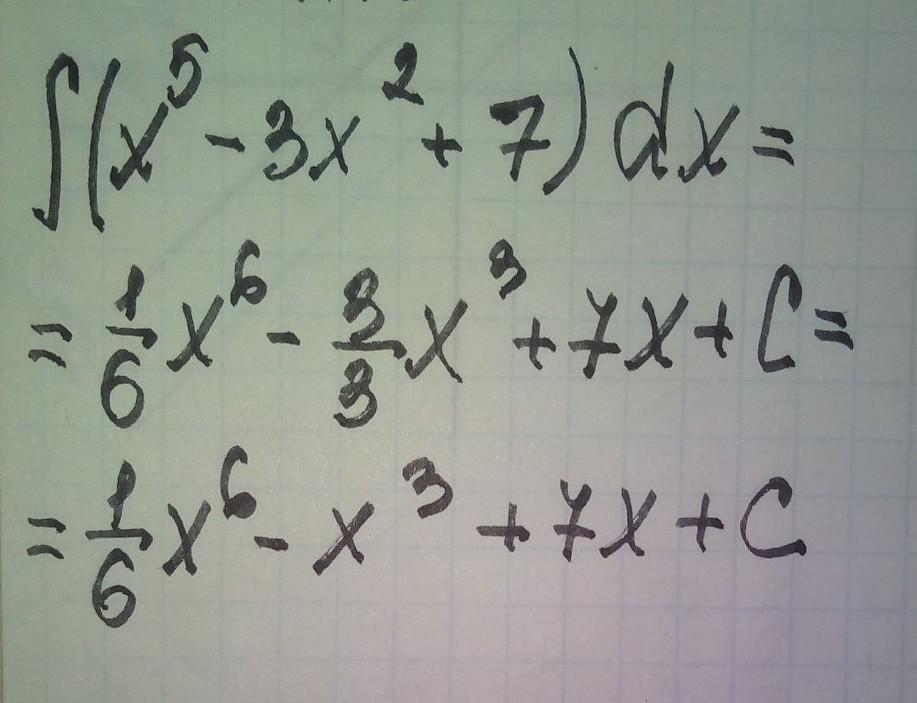 ∫(x⁵ - 3x² + 7) dx =
= 1/6 x⁶ - 3/3 x³ + 7x + C =
= 1/6 x⁶ - x³ + 7x + C